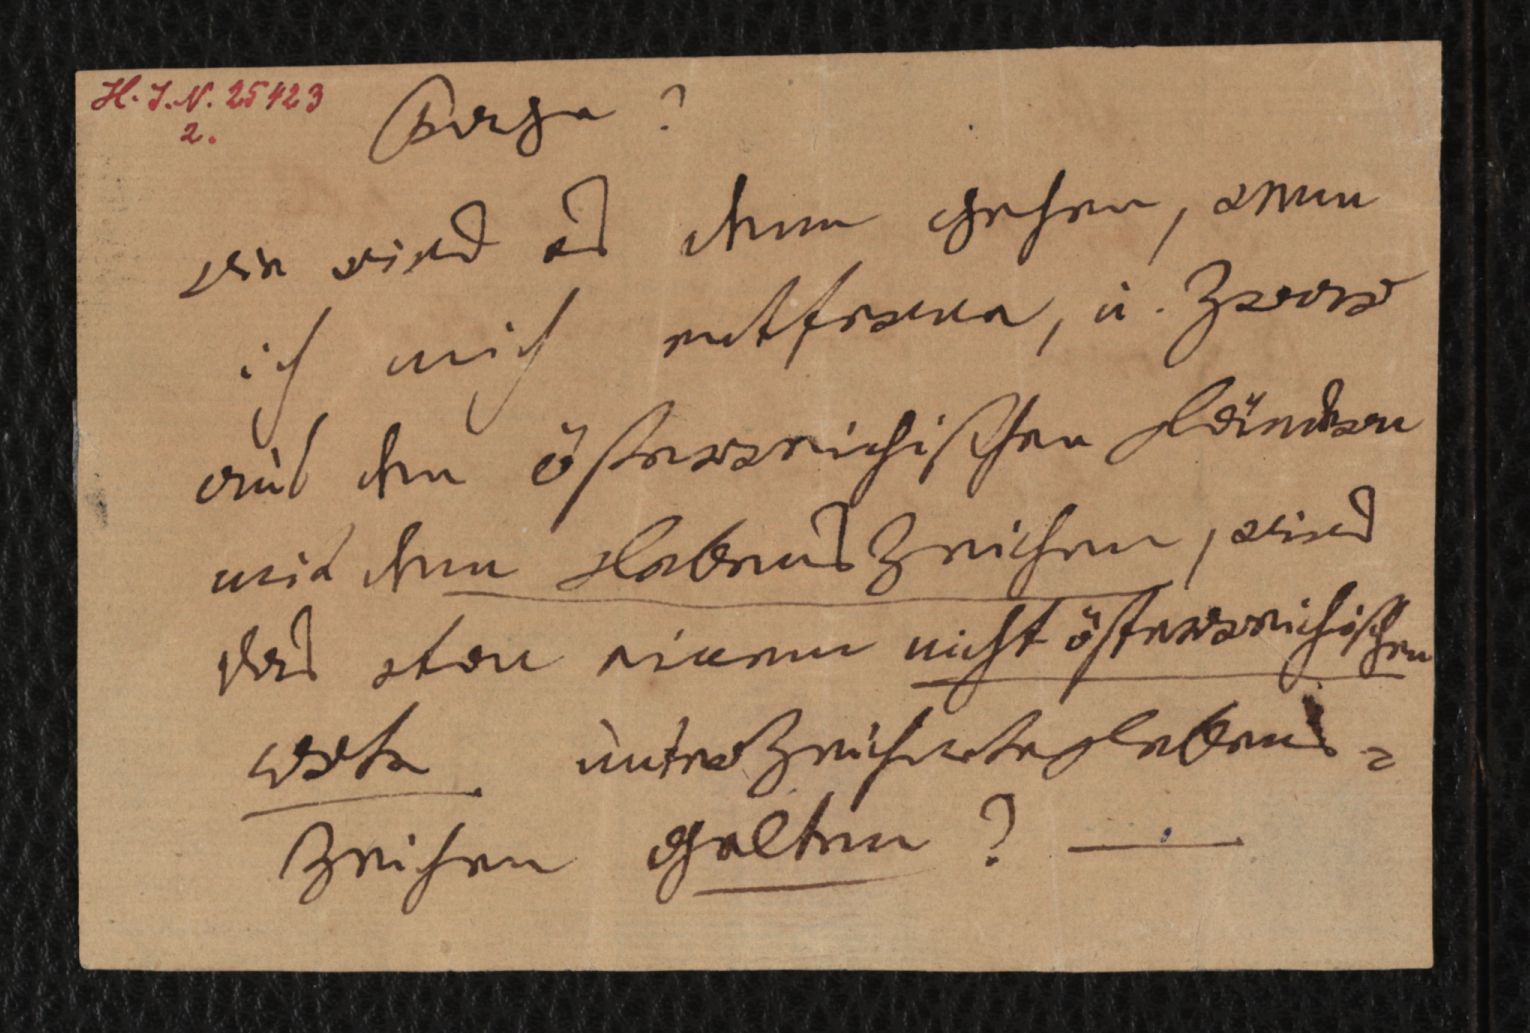 H. I. N. 25423
2.
Frage?
wie wird es denn gehen, wenn
ich mich entferne, u. zwar
aus den österreichischen Ländern
mit dem LebensZeichen, wird
das von einem nicht österreichischen
orte unterZeichnete Lebens=
Zeichen gelten? —